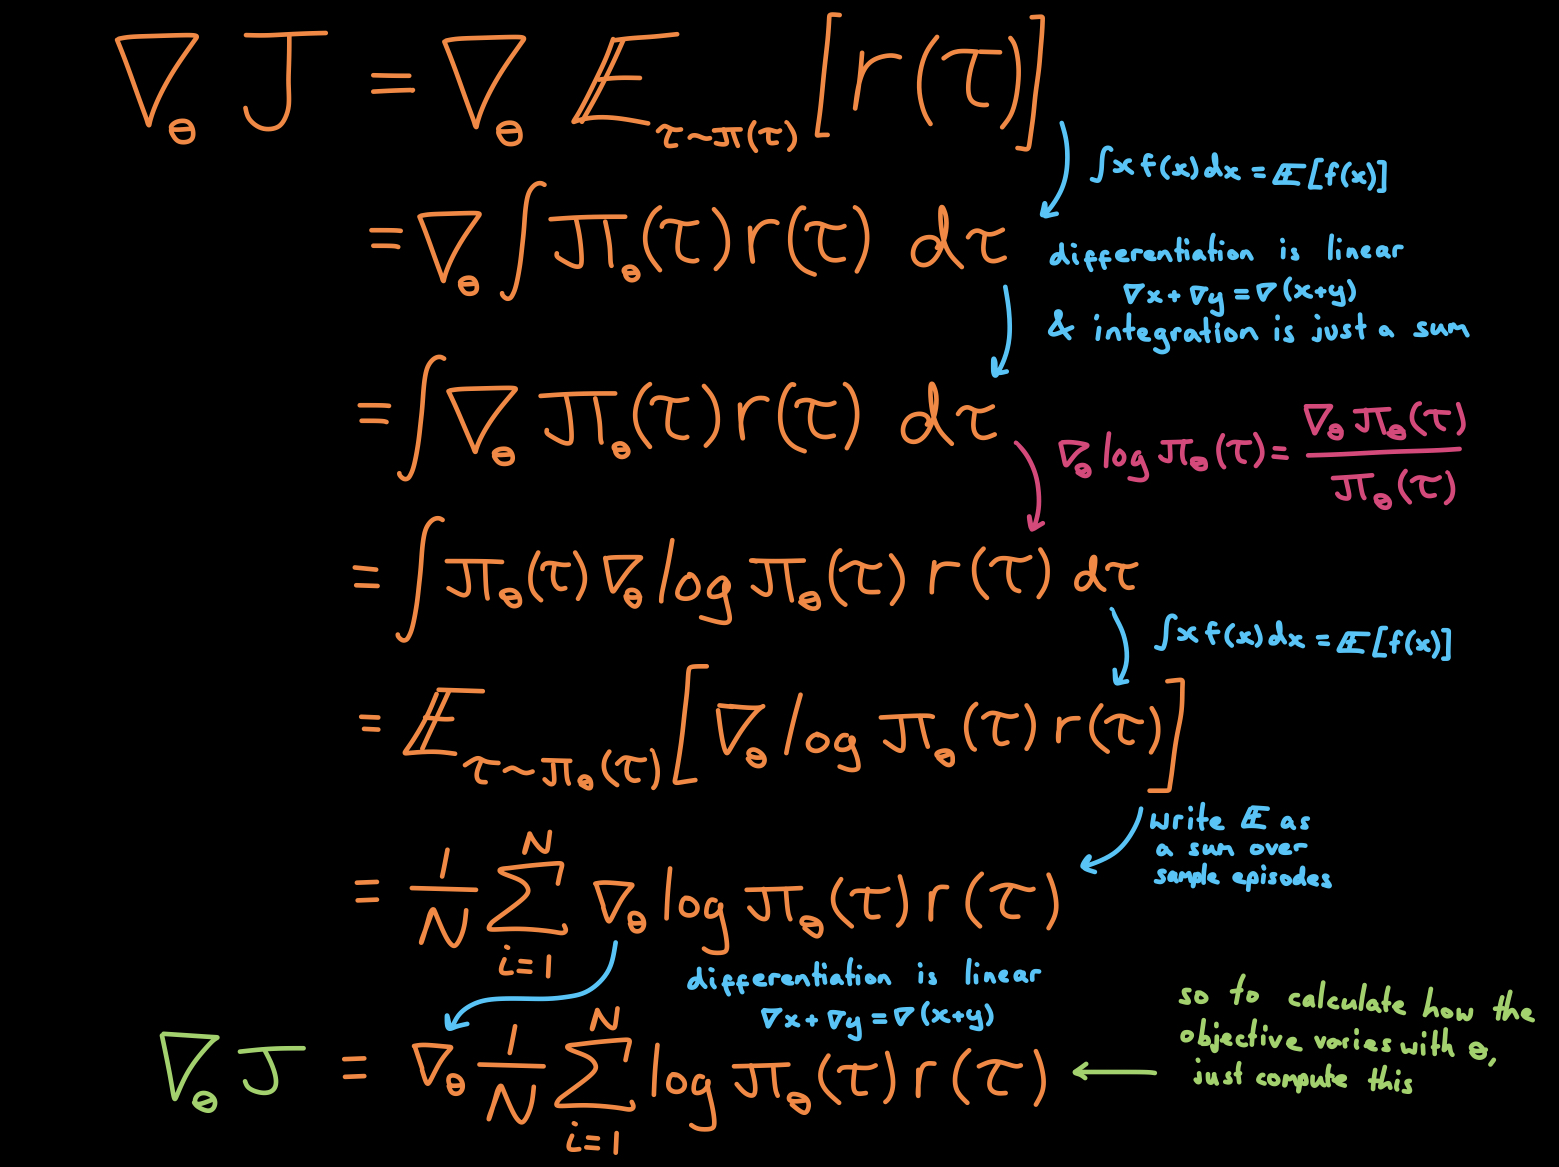 ∇_θ J = ∇_θ 𝔼_{τ~π(τ)} [r(τ)]
∫x f(x) dx = 𝔼[f(x)]
= ∇_θ ∫ π_θ(τ) r(τ) dτ
differentiation is linear
∇x + ∇y = ∇(x+y)
& integration is just a sum
= ∫ ∇_θ π_θ(τ) r(τ) dτ
∇_θ log π_θ(τ) = ∇_θ π_θ(τ) / π_θ(τ)
= ∫ π_θ(τ) ∇_θ log π_θ(τ) r(τ) dτ
∫x f(x) dx = 𝔼[f(x)]
= 𝔼_{τ~π_θ(τ)} [∇_θ log π_θ(τ) r(τ)]
write 𝔼 as
a sum over
sample episodes
= 1/N ∑_{i=1}^{N} ∇_θ log π_θ(τ) r(τ)
differentiation is linear
∇x + ∇y = ∇(x+y)
∇_θ J = ∇_θ 1/N ∑_{i=1}^{N} log π_θ(τ) r(τ)
so to calculate how the
objective varies with θ,
just compute this